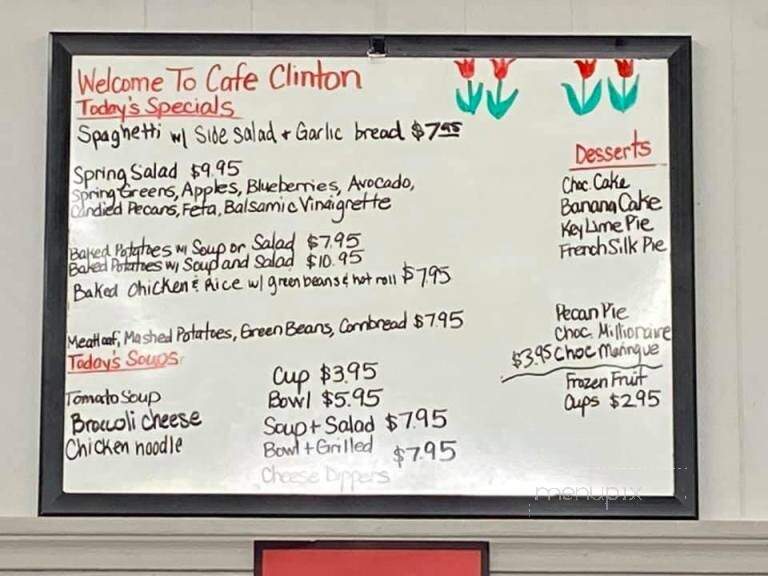 Welcome To Cafe Clinton
Today's Specials
Spaghetti w/ Side Salad + Garlic bread $7.95
Spring Salad $9.95
Spring Greens, Apples, Blueberries, Avocado,
Candied Pecans, Feta, Balsamic Vinaigrette
Baked Potatoes w/ Soup or Salad $7.95
Baked Potatoes w/ Soup and Salad $10.95
Baked Chicken & Rice w/ green beans & hot roll $7.95
Meatloaf, Mashed Potatoes, Green Beans, Cornbread $7.95
Today's Soups
Tomato Soup
Broccoli Cheese
Chicken noodle
Cup $3.95
Bowl $5.95
Soup + Salad $7.95
Bowl + Grilled $7.95
Cheese Dippers
Desserts
Choc. Cake
Banana Cake
Key Lime Pie
French Silk Pie
Pecan Pie
Choc. Millionaire
$3.95 Choc Maringue
Frozen Fruit
Cups $2.95
menupix